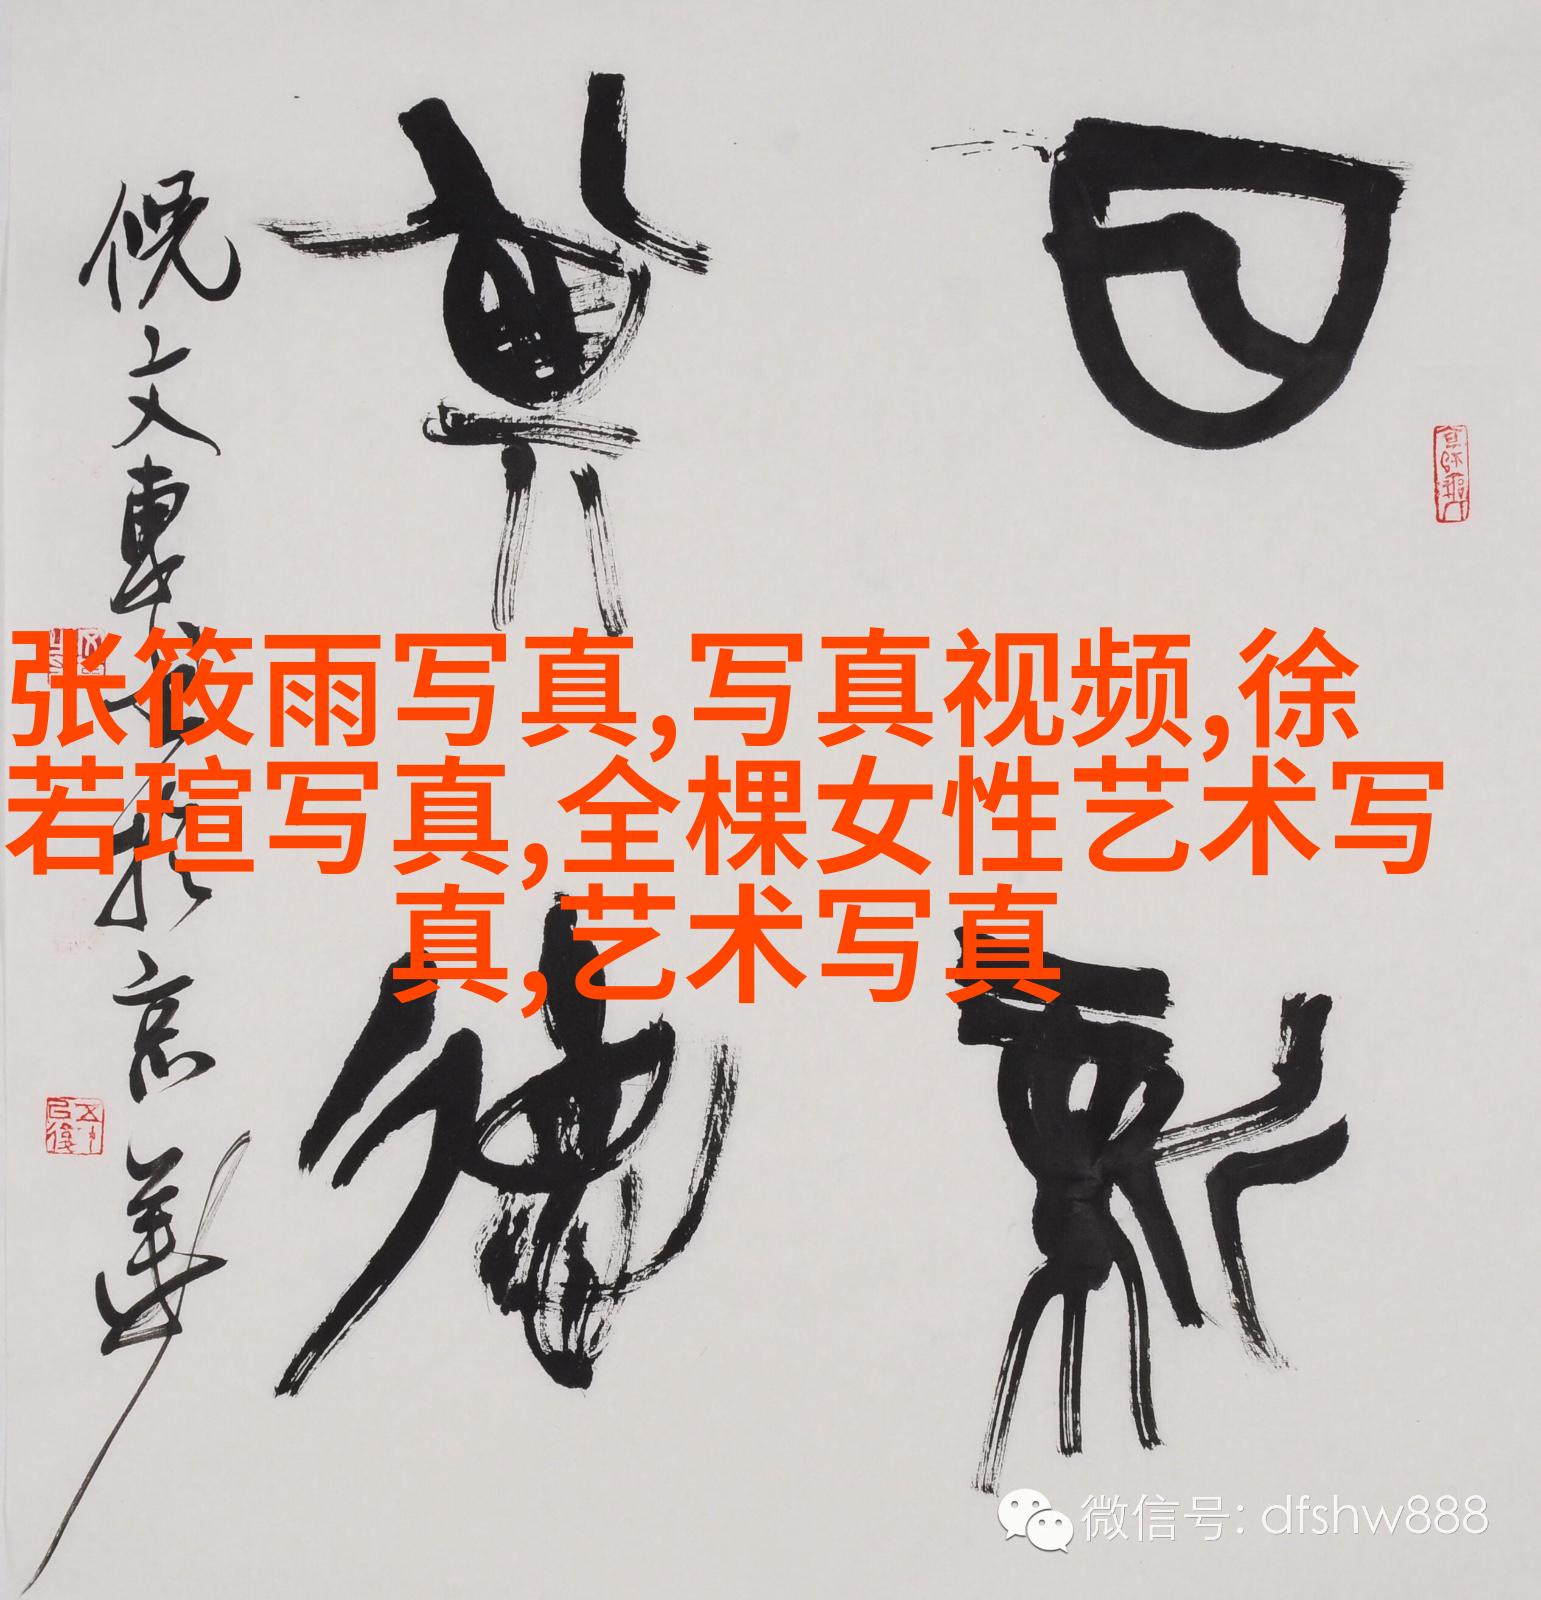 日新
其德
倪文東書於京華
张筱雨写真,写真视频,徐
若瑄写真,全棵女性艺术写
真,艺术写真
微信号: dfshw888